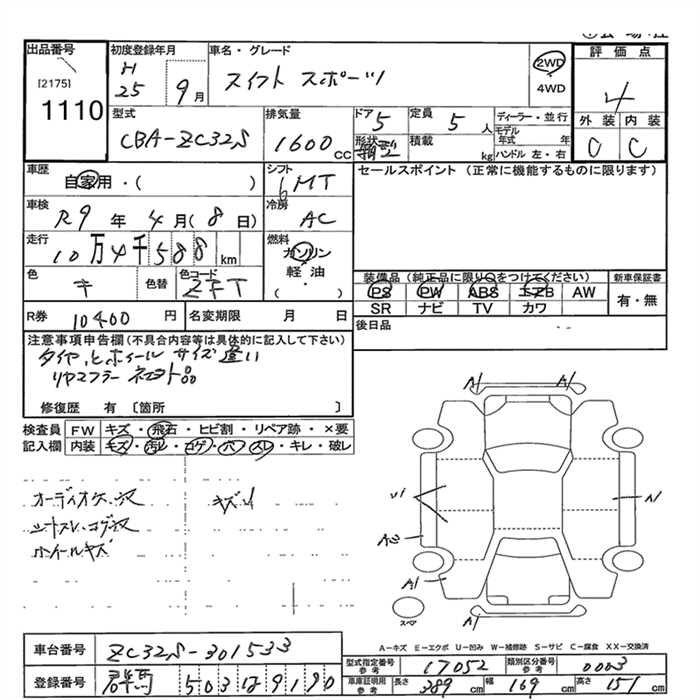 出品番号
[2175]
1110
初度登録年月
H
25 9月
車名・グレード
スイフト スポーツ
2WD
4WD
評価点
4
外装 内装
C C
型式
CBA-ZC32S
排気量
1600cc
ドア
5
形状
定員
5人
積載
kg
ディーラー・並行
モデル年式 年
ハンドル 左・右
車歴
自家用・( )
シフト
6MT
セールスポイント (正常に機能するものに限ります)
車検
R9年4月(8日)
冷房
AC
走行
10万4千588km
燃料
ガソリン
軽油・
( )
色
キ
色替
色コード
ZFT
装備品 (純正品に限り○をつけてください)
新車保証書
PS PW ABS エアB AW
SR ナビ TV カワ
有・無
R券 10400円
名変期限 月 日
後日品
注意事項申告欄(不具合内容等は具体的に記入して下さい)
タイヤ、ホイールサイズ違い
リヤマフラー
修復歴 有 〔箇所 〕
検査員記入欄
FW キズ・飛石・ヒビ割・リペア跡・×要
内装 キズ・汚レ・コゲ・穴・スレ・キレ・破レ
オーディオケース
キズU
シートスレ、コゲ穴
ホイールキズ
A1 A1
A1
A1
A1
スペア
A-キズ E-エクボ U-凹み W-補修跡 S-サビ C-腐食 XX-交換済
車台番号 ZC32S-301533
型式指定番号 参考 17052
類別区分番号 参考 0003
登録番号 群馬 503
車庫証明用 参考 長さ 389cm 幅 169cm 高さ 151cm